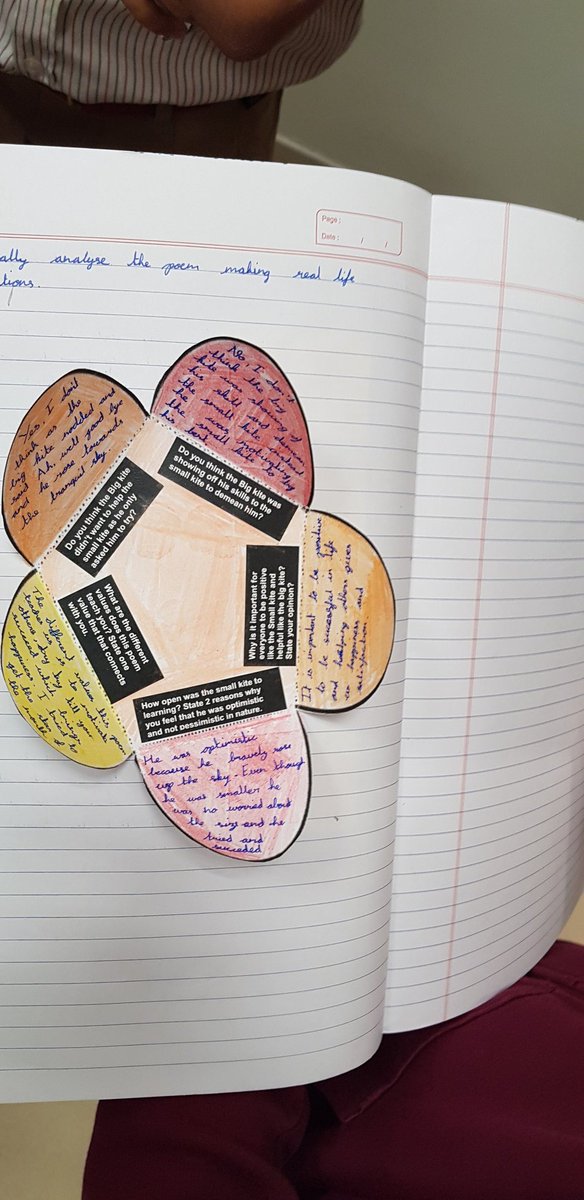 Page :
Date : / /
ally analyse the poem making real life
tions.
No, I don't
think the big
kite was showing of
his skill and demean
the small kite instead
the was motivating
his small kite if you
Do you think the Big kite was
showing off his skills to the
small kite to demean him?
Yes, I don't
think as the
big kite nodded and
said Ah well good bye
and he rose towards
the tranquil sky
Do you think the Big kite
didn't want to help the
small kite as he only
asked him to try?
It is important to be positive
to be successful in life
and helping others gives
us happiness and
satisfaction
Why is it important for
everyone to be positive
like the Small kite and
helpful like the big kite?
State your opinion?
The different values this poem
teaches by to motivate
others and try till you
succeed which brings
happiness I tried
got the result
What are the different
values does this poem
teach you? State one
value that that connects
with you.
How open was the small kite to
learning? State 2 reasons why
you feel that he was optimistic
and not pessimistic in nature.
He was optimistic
because he bravely rose
up the sky. Even though
he was smaller he
was no worried about
the size and he
tried and
succeded